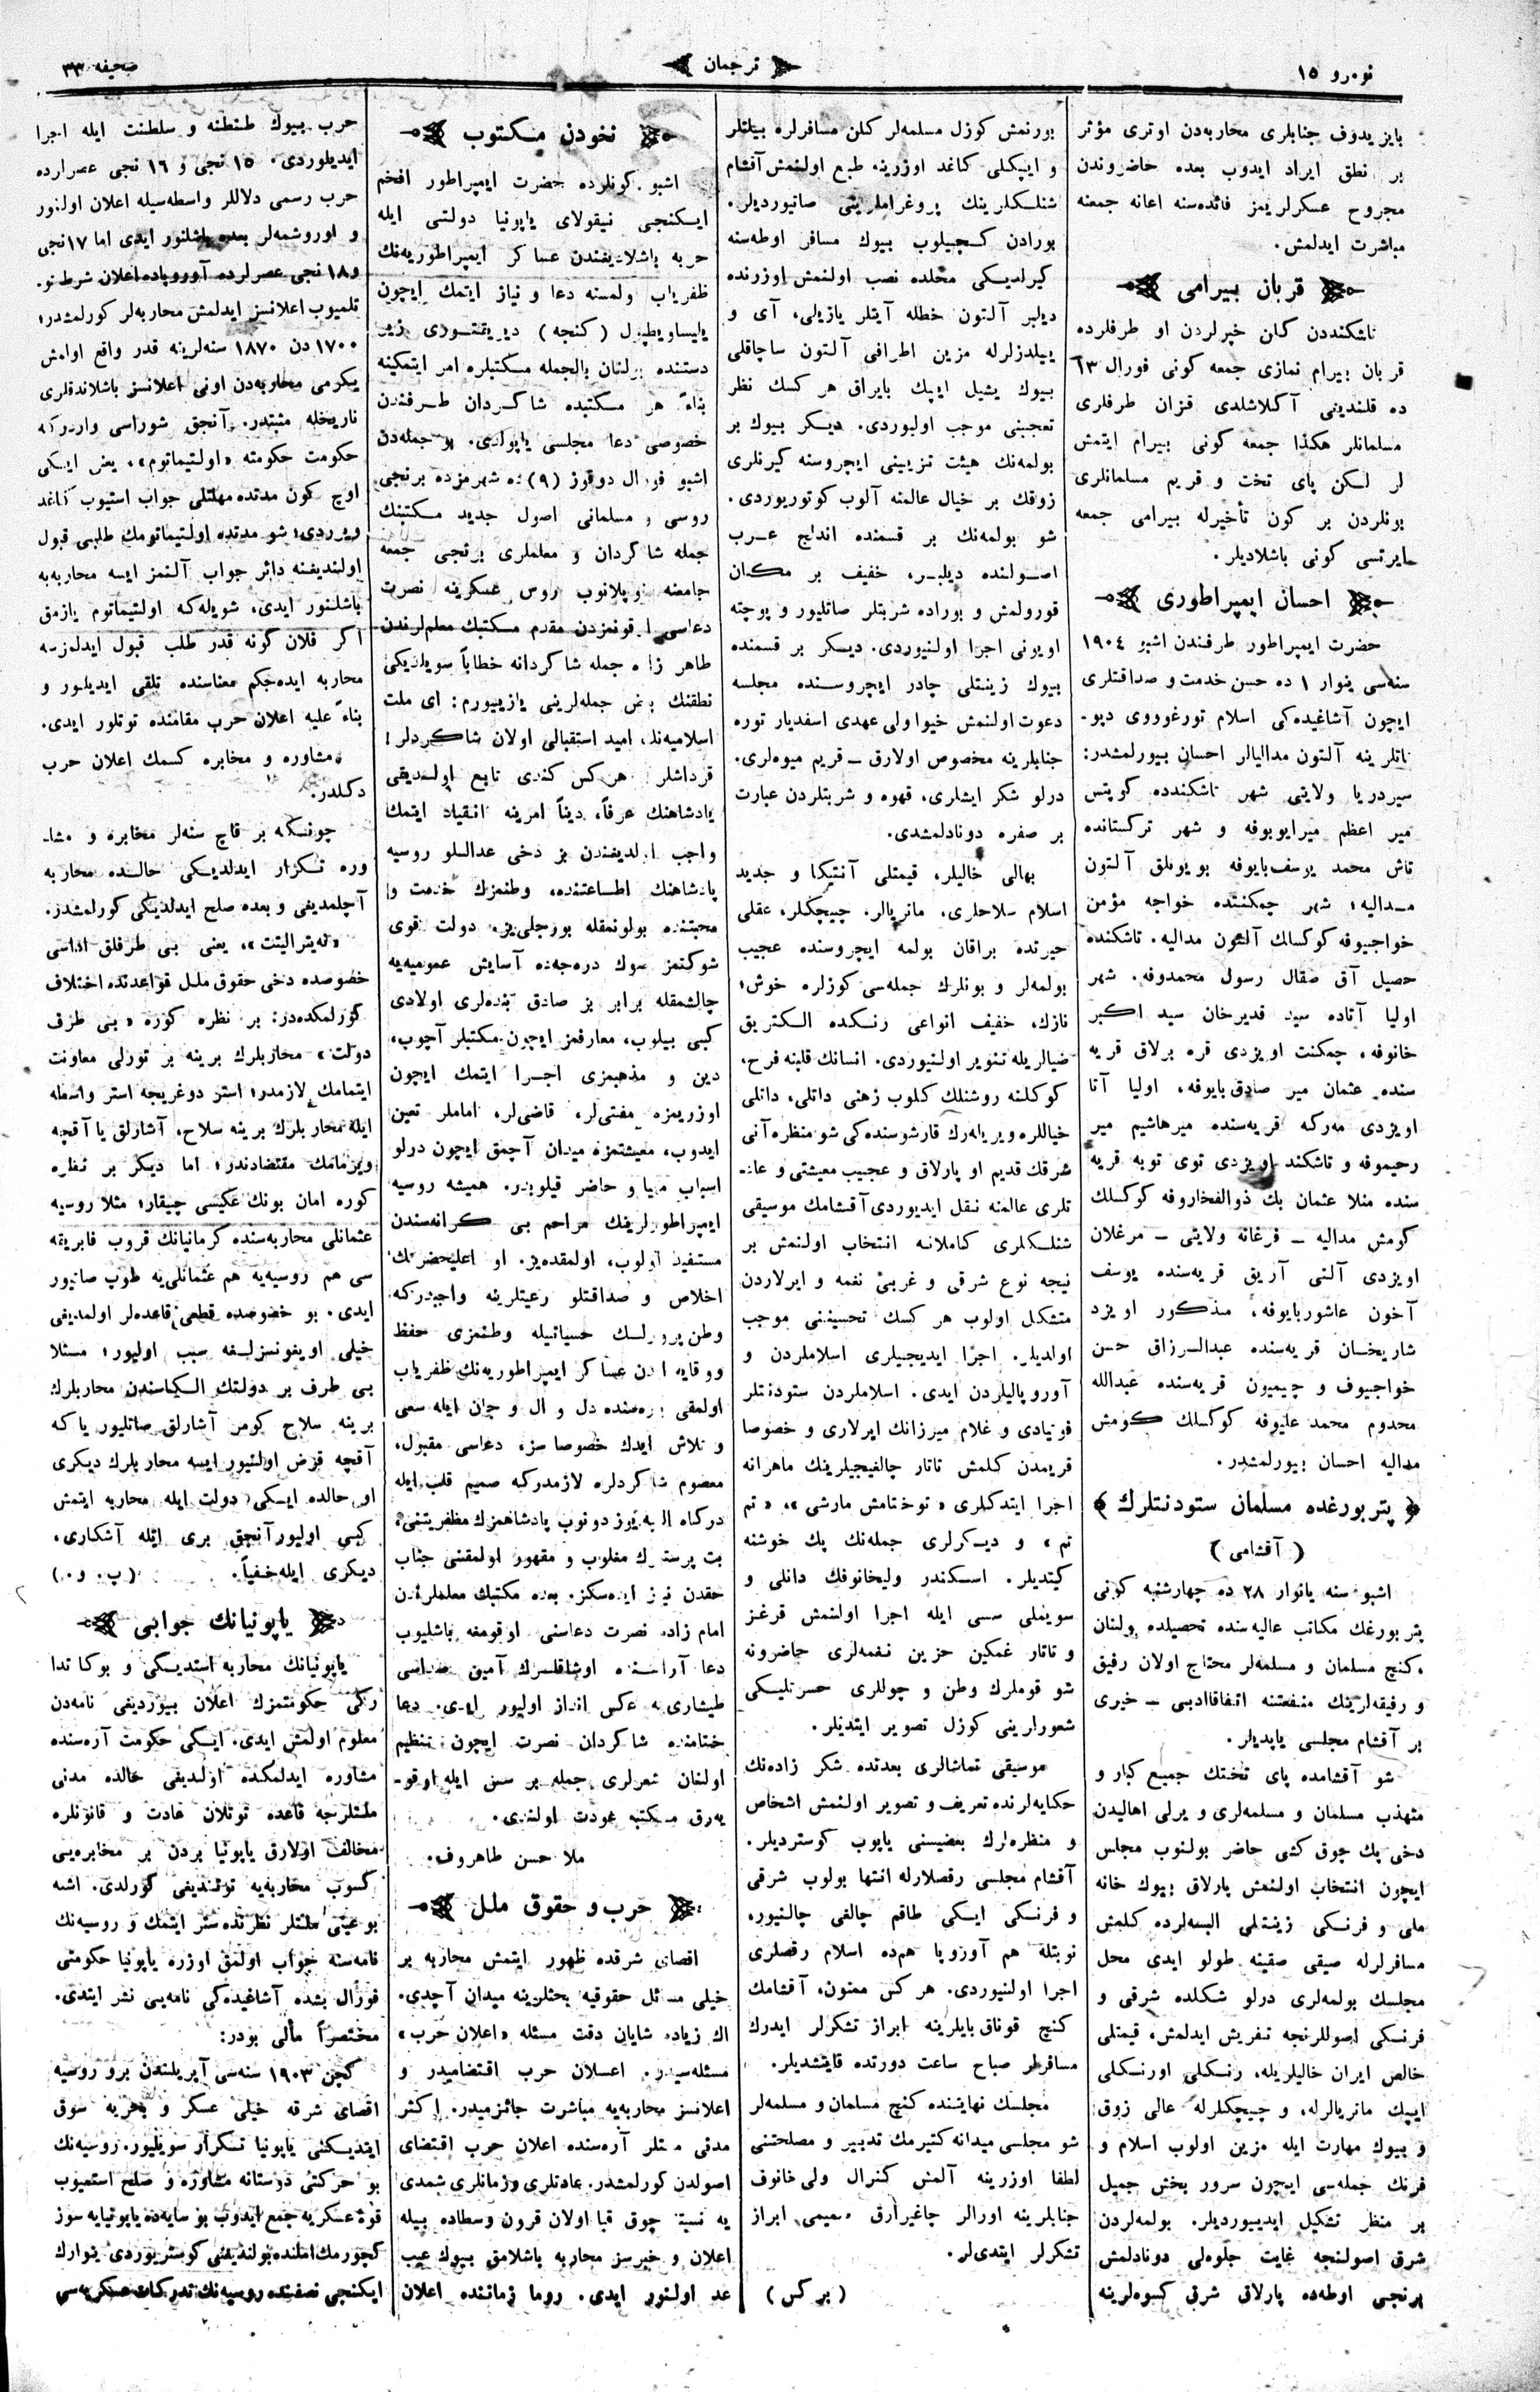 نومرو ١٥
ترجمان
صحيفه ٣٣
بايزيدوف جنابلرى محاربه‌دن اوترى مؤثر
بر نطق ايراد ايدوب بعده حاضروندن
مجروح عسكرلريمز فائده‌سنه اعانه جمعنه
مباشرت ايدلمش.
قربان بيرامى
تاشكنددن كلن خبرلردن او طرفلرده
قربان بيرام نمازى جمعه كونى فورال ١٣
ده قلنديغى آكلاشلدى قزان طرفلرى
مسلمانلر هكذا جمعه كونى بيرام ايتمش
لر لكن پاى تخت و قريم مسلمانلرى
بونلردن بر كون تأخيرله بيرامى جمعه
ايرتسى كونى باشلاديلر.
احسان ايمپراطورى
حضرت ايمپراطور طرفندن اشبو ١٩٠٤
سنه‌سى ينوار ١ ده حسن خدمت و صداقتلرى
ايچون آشاغيده‌كى اسلام تورغوووى دپو-
تاتلرينه آلتون مداليالر احسان بيورلمشدر:
سيردريا ولايتى شهر تاشكندده كوپتس
مير اعظم ميرايوبوفه و شهر تركستانده
تاش محمد يوسف‌بايوفه بويونلق آلتون
مداليه؛ شهر چمكنتده خواجه مؤمن
خواجيوفه كوكسلك آلتون مداليه. تاشكنده
حصيل آق صقال رسول محمدوفه. شهر
اوليا آتاده سيد قديرخان سيد اكبر
خانوفه، چمكنت اويزدى قره برلاق قريه
سنده عثمان مير صادق‌بايوفه، اوليا آتا
اويزدى مەركه قريه‌سنده ميرهاشيم مير
رحيموفه و تاشكند اويزدى توى توبه قريه
سنده منلا عثمان بك ذوالفخاروفه كوكسلك
كومش مداليه – فرغانه ولايتى – مرغلان
اويزدى آلتى آريق قريه‌سنده يوسف
آخون عاشوربايوفه، مذكور اويزد
شاريخان قريه‌سنده عبدالرزاق حسن
خواجيوف و چيميون قريه‌سنده عبدالله
مخدوم محمد عليوفه كوكسلك كومش
مداليه احسان بيورلمشدر.
﴿ پتربورغده مسلمان ستودنتلرك ﴾
( آقشامى )
اشبو سنه يانوار ٢٨ ده چهارشنبه كونى
پتربورغك مكاتب عاليه‌سنده تحصيلده بولنان
كنچ مسلمان و مسلمه‌لر محتاج اولان رفيق
و رفيقه‌لرينك منفعتنه اتفاقاادبى – خيرى
بر آقشام مجلسى ياپديلر.
شو آقشامده پاى تختك جميع كبار و
متهذب مسلمان و مسلمه‌لرى و يرلى اهاليدن
دخى پك چوق كشى حاضر بولنوب مجلس
ايچون انتخاب اولنمش پارلاق بيوك خانه
ملى و فرنكى زينتلى البسه‌لرده كلمش
مسافرلرله صيقى صقينه طولو ايدى محل
مجلسك بولمه‌لرى درلو شكلده شرقى و
فرنكى اصوللرنجه تفريش ايدلمش، قيمتلى
خالص ايران خاليلريله، رنكلى اورنكلى
ايپك ماتريالرله، و چيچكلرله عالى زوق
و بيوك مهارت ايله مزين اولوب اسلام و
فرنك جمله‌سى ايچون سرور بخش جميل
بر منظر تشكيل ايديورديلر. بولمه‌لردن
شرق اصولنجه غايت جلوه‌لى دونادلمش
برنجى اوطه‌ده پارلاق شرقى كسوه‌لرينه
بورنمش كوزل مسلمه‌لر كلن مسافرلره بيلتلر
و ايپكلى كاغد اوزرينه طبع اولنمش آقشام
شنلكلرينك پروغراملرينى صاتيورديلر.
بورادن كچيلوب بيوك مسافر اوطه‌سنه
كيرلديكى محلده نصب اولنمش اوزرنده
ديلبر آلتون خطله آيتلر يازيلى، آى و
ييلدزلرله مزين اطرافى آلتون ساچاقلى
بيوك يشيل ايپك بايراق هر كسك نظر
تعجبنى موجب اوليوردى. ديكر بيوك بر
بولمه‌نك هيئت تزيينى ايچروسنه كيرنلرى
زوقك بر خيال عالمنه آلوب كوتوريوردى.
شو بولمه‌نك بر قسمنده اندلج عرب
اصولنده ديلبر، خفيف بر مكان
قورولمش و بوراده شربتلر صاتليور و پوچته
اويونى اجرا اولنيوردى. ديكر بر قسمنده
بيوك زينتلى چادر ايچروسنده مجلسه
دعوت اولنمش خيوا ولى عهدى اسفديار توره
جنابلرينه مخصوص اولارق – قريم ميوه‌لرى.
درلو شكر ايشلرى، قهوه و شربتلردن عبارت
بر صفره دونادلمشدى.
بهالى خاليلر، قيمتلى آنتيكا و جديد
اسلام سلاحلرى، ماتريالر. چيچكلر، عقلى
حيرتده براقان بولمه ايچروسنده عجيب
بولمه‌لر و بونلرك جمله‌سى كوزلره خوش؛
نازك، خفيف انواعى رنكده الكتريق
ضيالريله تنوير اولنيوردى. انسانك قلبنه فرح،
كوكلنه روشنلك كلوب زهنى داتلى، داتلى
خياللره ويريلەرك قارشوسنده‌كى شو منظره آنى
شرقك قديم او پارلاق و عجيب معيشتى و عاد-
تلرى عالمنه نقل ايديوردى آقشامك موسيقى
شنلكلرى كاملانه انتخاب اولنمش بر
نيجه نوع شرقى و غربئ نغمه و ايرلاردن
متشكل اولوب هر كسك تحسيننى موجب
اولديلر. اجرا ايديجيلرى اسلاملردن و
آوروپاليلردن ايدى. اسلاملردن ستودنتلر
فوتيادى و غلام ميرزانك ايرلارى و خصوصا
قريمدن كلمش تاتار چالغيجيلرينك ماهرانه
اجرا ايتدكلرى «توختامش مارشى»، «تم
تم» و ديكرلرى جمله‌نك پك خوشنه
كيتديلر. اسكندر وليخانوفك داتلى و
سوينملى سسى ايله اجرا اولنمش قرغز
و تاتار غمكين حزين نغمه‌لرى حاضرونه
شو قوملرك وطن و چوللرى حسرتليكى
شعورلرينى كوزل تصوير ايتديلر.
موسيقى تماشالرى بعدنده شكر زاده‌نك
حكايه‌لرنده تعريف و تصوير اولنمش اشخاص
و منظره‌لرك بعضيسنى ياپوب كوسترديلر.
آقشام مجلسى رقصلارله انتها بولوب شرقى
و فرنكى ايكى طاقم چالغى چالنيور،
نوبتله هم آوروپا هم‌ده اسلام رقصلرى
اجرا اولنيوردى. هر كس ممنون، آقشامك
كنچ قوناق بايلرينه ابراز تشكرلر ايدرك
مسافرلر صباح ساعت دورتده قايتشديلر.
مجلسك نهايتنده كنچ مسلمان و مسلمه‌لر
شو مجلسى ميدانه كتيرمك تدبير و مصلحتنى
لطفا اوزرينه آلمش كنرال ولى خانوف
جنابلرينه اورالر چاغيرارق صميمى ابراز
تشكرلر ايتدى‌لر.
( بر كس )
نخودن مكتوب
اشبو كونلرده حضرت ايمپراطور افخم
ايكنجى نيقولاى ياپونيا دولتى ايله
حربه باشلاديغندن عساكر ايمپراطوريه‌نك
ظفرياب اولمسنه دعا و نياز ايتمك ايچون
يليساويطپول (كنجه) ديريقتورى زير
دستنده بولنان بالجمله مكتبلره امر ايتمكينه
بناءً هر مكتبده شاكردان طرفندن
خصوصى دعا مجلسى ياپولدى. بو جمله‌دن
اشبو فورال دوقوز (٩) ده شهرمزده برنجى
روسى و مسلمانى اصول جديد مكتبنك
جمله شاكردان و معلملرى برنجى جمعه
جامعنه توپلانوب روس عسكرينه نصرت
دعاسى اوقونمزدن مقدم مكتبك معلملرندن
طاهر زاده جمله شاكردانه خطاباً سويلديكى
نطقنك بعض جمله‌لرينى يازيورم: اى ملت
اسلاميه‌نك اميد استقبالى اولان شاكردلر!
قرداشلر! هر كس كندى تابع اولديغى
پادشاهنك عرفاً، ديناً امرينه انقياد ايتمك
واجب اولديغندن بز دخى عدالتلو روسيه
پادشاهنك اطاعتنده، وطنمزك خدمت و
محبتنده بولونمقله بورجلى‌يز. دولت قوى
شوكتمز صوك دره‌جه‌ده آسايش عموميه‌يه
چالشمقله برابر بز صادق بنده‌لرى اولادى
كبى بيلوب، معارفمز ايچون مكتبلر آچوب،
دين و مذهبمزى اجرا ايتمك ايچون
اوزريمزه مفتى‌لر، قاضى‌لر، اماملر تعين
ايدوب، معيشتمزه ميدان آچمق ايچون درلو
اسباب مهيا و حاضر قيلوبدر. هميشه روسيه
ايمپراطورلرينك مراحم بى كرانه‌سندن
مستفيد اولوب، اولمقده‌يز. او اعليحضرتك
اخلاص و صداقتلو رعيتلرينه واجبدركه
وطن‌پرورلك حسياتيله وطنمزى حفظ
ووقايه ايدن عساكر ايمپراطوريه‌نك ظفرياب
اولمغى يولنده دل و ال و جان ايله سعى
و تلاش ايدك خصوصا سز، دعاسى مقبول،
معصوم شاكردلره لازمدركه صميم قلب ايله
دركاه الهه يوز دوتوب پادشاهمزك مظفريتنى،
بت پرستلرك مغلوب و مقهور اولمقنى جناب
حقدن نياز ايده‌سكز. بعده مكتبك معلملرندن
امام زاده نصرت دعاسنى اوقومغه باشليوب
دعا آراسنده اوشاقلرك آمين صداسى
طيشارى‌يه عكس انداز اوليور ايدى. دعا
ختامنده شاكردان نصرت ايچون تنظيم
اولنان شعرلرى جمله بر سس ايله اوقو-
يه‌رق مكتبه عودت اولندى.
ملا حسن طاهروف.
حرب و حقوق ملل
اقصاى شرقده ظهور ايتمش محاربه بر
خيلى مسائل حقوقيه بحثلرينه ميدان آچدى.
اك زياده شايان دقت مسئله «اعلان حرب»
مسئله‌سيدر. اعلان حرب اقتضاميدر و
اعلانسز محاربه‌يه مباشرت جائزميدر. اكثر
مدنى ملتلر آره‌سنده اعلان حرب اقتضاى
اصولدن كورلمشدر. عادتلرى و زمانلرى شمدى
يه نسبةً چوق قبا اولان قرون وسطاده بيله
اعلان و خبرسز محاربه باشلامق بيوك عيب
عد اولنور ايدى. روما زماننده اعلان
حرب بيوك طنطنه و سلطنت ايله اجرا
ايديلوردى. ١٥ نجى و ١٦ نجى عصرلرده
حرب رسمى دلاللر واسطه‌سيله اعلان اولنور
و اوروشمه‌لر بعده باشلنور ايدى اما ١٧نجى
و١٨ نجى عصرلرده آوروپاده اعلان شرط تو.
تلميوب اعلانسز ايدلمش محاربه‌لر كورلمشدر؛
١٧٠٠ دن ١٨٧٠ سنه‌لرينه قدر واقع اولمش
يكرمى محاربه‌دن اونى اعلانسز باشلاندقلرى
تاريخله مثبتدر. آنجق شوراسى واردركه
حكومت حكومته «اولتيماتوم»، يعنى ايكى
اوچ كون مدتده مهلتلى جواب استيوب كاغد
ويررردى؛ شو مدتده اولتيماتومك طلبى قبول
اولنديغنه دائر جواب آلنمز ايسه محاربه‌يه
باشلنور ايدى، شويله‌كه اولتيماتوم يازمق
اكر فلان كونه قدر طلب قبول ايدلمزسه
محاربه ايده‌جكم معناسنده تلقى ايديلور و
بناءً عليه اعلان حرب مقامنده توتلور ايدى.
مشاوره و مخابره كسمك اعلان حرب
دكلدر.
چونكه بر قاچ سنه‌لر مخابره و مشا-
وره تكرار ايدلديكى حالده محاربه
آچلمديغى و بعده صلح ايدلديكى كورلمشدر.
«نەيتراليتت»، يعنى بى طرفلق اداسى
خصوصده دخى حقوق ملل قواعدنده اختلاف
كورلمكده‌در: بر نظره كوره «بى طرف
دولت» محاربلرك برينه بر تورلى معاونت
ايتمامك لازمدر؛ استر دوغريجه استر واسطه
ايله محاربلرك برينه سلاح، آشارلق يا آقچه
ويرمامك مقتضادندر؛ اما ديكر بر نظره
كوره امان بونك عكيسى چيقار؛ مثلا روسيه
عثمانلى محاربه‌سنده كرمانيانك قروپ فابريقه
سى هم روسيه‌يه هم عثمانلى‌يه طوپ صاتيور
ايدى. بو خصوصده قطعى قاعده‌لر اولمديغى
خيلى اويغونسزلغه سبب اوليور؛ مسئلا
بى طرف بر دولتك الكاسندن محاربلرك
برينه سلاح كومر آشارلق صاتليور ياكه
آقچه قرض اولنيور ايسه محاربلرك ديكرى
او حالده ايكى دولت ايله محاربه ايتمش
كبى اوليور آنجق برى ايله آشكارى،
ديكرى ايله خفياً. (پ. و.)
ياپونيانك جوابى
ياپونيانك محاربه استديكى و بوكا ندا
ركى حكومتمزك اعلان بيورديغى نامه‌دن
معلوم اولمش ايدى. ايكى حكومت آره‌سنده
مشاوره ايدلمكده اولديغى حالده مدنى
ملتلرجه قاعده توتلان عادت و قانونلره
مخالف اولارق ياپونيا بردن بر مخابره‌يى
كسوب محاربه‌يه توتنديغى كورلدى. اشبه
بو عيبى ملتلر نظرنده ستر ايتمك و روسيه‌نك
نامه‌سنه جواب اولمق اوزره ياپونيا حكومتى
فورال بشده آشاغيده‌كى نامه‌يى نشر ايتدى.
مختصراً مآلى بودر:
كچن ١٩٠٣ سنه‌سى آپريلندن برو روسيه
اقصاى شرقه خيلى عسكر و بحريه سوق
ايتديكنى ياپونيا تكرار سويليور. روسيه‌نك
بو حركتى دوستانه مشاوره و صلح استميوب
قوۀ عسكريه جمع ايدوب بو سايه‌ده ياپونيايه سوز
كچورمك املنده بولنديغنى كوستريوردى ينوارك
ايكنجى نصفنده روسيه‌نك تدركات عسكريه‌سى